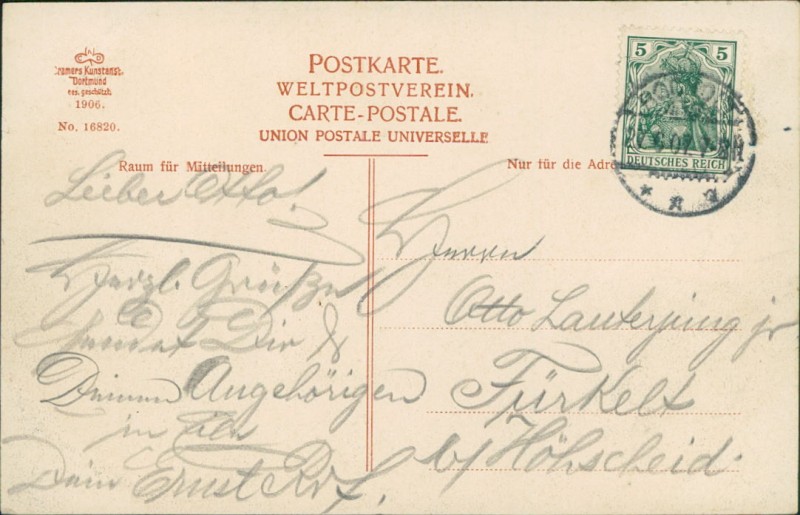 Cramers Kunstanst.
Dortmund
res. geschützt.
1906.
No. 16820.
POSTKARTE.
WELTPOSTVEREIN.
CARTE-POSTALE.
UNION POSTALE UNIVERSELLE
5 5
DEUTSCHES REICH
Raum für Mitteilungen
Nur für die Adre
Lieber Otto!
Herzl. Grüße
sendet Dir &
Deinen Angehörigen
in Eile
Dein Ernst
Herrn
Otto Lauterjung jr
Fürkelt
b/ Höhscheid.